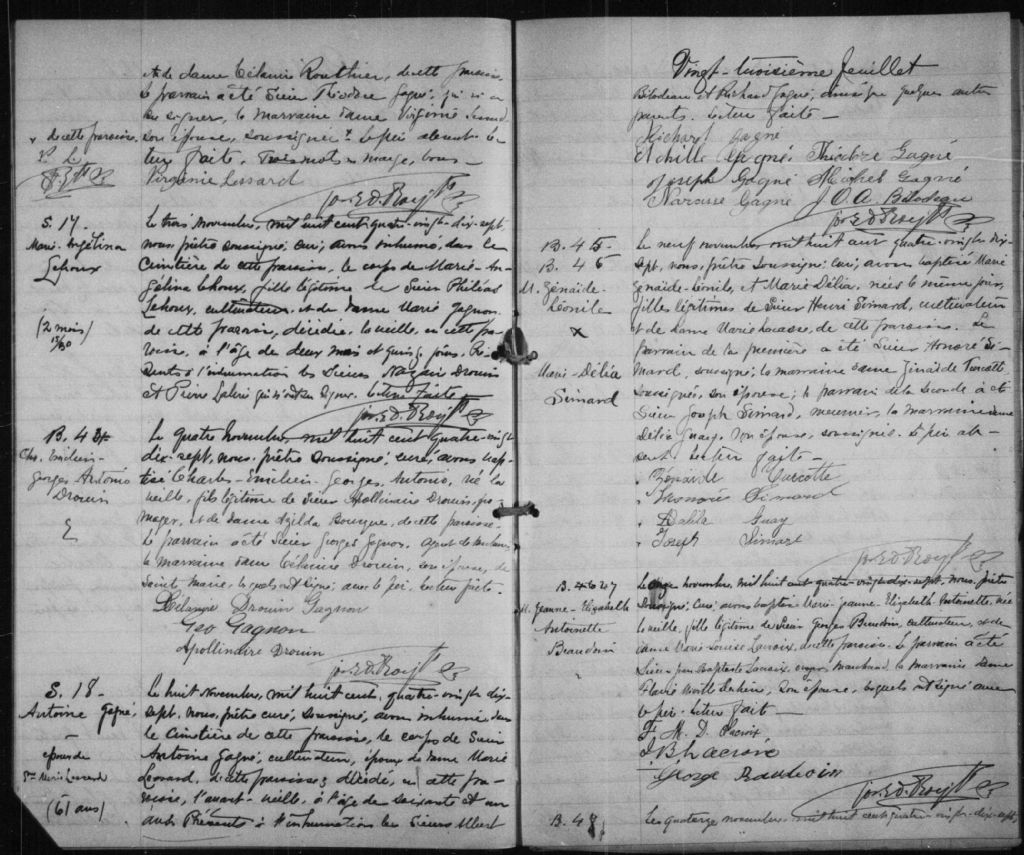 et de dame Célanire Routhier, de cette paroisse.
Le parrain a été Sieur Théodore Gagné, qui n'a
su signer, la marraine dame Virginie Lessard
de cette paroisse,
son épouse, soussignée. Le père absent. Lec-
ture faite. Trois mots en marge, bons
Virginie Lessard
Jos. E. D. Roy Ptre
S. 17.
Marie-Angélina
Lehoux
(2 mois)
Le trois novembre, mil huit cent quatre-vingt-dix-sept,
nous, prêtre soussigné, curé, avons inhumé, dans le
Cimetière de cette paroisse, le corps de Marie-An-
gélina Lehoux, fille légitime de Sieur Philéas
Lehoux, cultivateur, et de dame Marie Gagnon
de cette paroisse, décédée, la veille, en cette pa-
roisse, à l'âge de deux mois et quinze jours. Pré-
sents à l'inhumation les Sieurs Nazaire Drouin
et Pierre qui n'ont su signer. Lecture faite
Jos. E. D. Roy Ptre
B. 43
Chs. Emilien-
Georges Antonio
Drouin
Le quatre novembre, mil huit cent quatre-vingt
dix-sept, nous, prêtre soussigné, curé, avons bap-
tisé Charles-Emilien-Georges Antonio, né la
veille, fils légitime de Sieur Apollinaire Drouin, fro-
mager, et de dame Azilda Bourque, de cette paroisse.
Le parrain a été Sieur Georges Gagnon, agent de
la marraine dame Célanire Drouin, son épouse, de
Sainte Marie, lesquels ont signé avec le père. Lecture faite.
Célanire Drouin Gagnon
Geo Gagnon
Apollinaire Drouin
Jos. E. D. Roy Ptre
S. 18-
Antoine Gagné,
époux de
Dme Marie Lessard
(61 ans)
Le huit novembre, mil huit cent quatre-vingt-dix-
sept, nous, prêtre curé, soussigné, avons inhumé dans
le Cimetière de cette paroisse, le corps de Sieur
Antoine Gagné, cultivateur, époux de dame Marie
Lessard, de cette paroisse, décédé, en cette pa-
roisse, l'avant-veille, à l'âge de soixante et un
ans. Présents à l'inhumation les Sieurs Albert
Vingt-troisième feuillet
Bilodeau et Richard Gagné, ainsi que quelques autres
parents. Lecture faite -
Richard Gagné
Achille Gagné. Théodore Gagné
Joseph Gagné Michel Gagné
Narcisse Gagné J. O. A. Bilodeau
Jos. E. D. Roy Ptre
B. 45-
B. 46
M. Zénaïde-
Léonile
X
Marie-Délia
Simard
Le neuf novembre, mil huit cent quatre-vingt-dix-
sept, nous, prêtre soussigné, curé, avons baptisé Marie
Zénaïde-Léonile, et Marie Délia, nées le même jour,
filles légitimes de Sieur Henri Simard, cultivateur
et de dame Marie Lacasse, de cette paroisse. Le
parrain de la première a été Sieur Honoré Si-
mard, soussigné; la marraine dame Zénaïde Turcotte,
soussignée, son épouse; le parrain de la seconde a été
Sieur Joseph Simard, meunier, la marraine dame
Délia Guay, son épouse, soussignés. Le père ab-
sent. Lecture faite -
Zénaïde Turcotte
Honoré Simard
Dalila Guay
Joseph Simard
Jos. E. D. Roy Ptre
B. 46 47
M. Jeanne-Elizabeth
Antoinette
Beaudoin
Le onze novembre, mil huit cent quatre-vingt-dix-sept, nous, prêtre
soussigné, curé, avons baptisé Marie-Jeanne-Elizabeth Antoinette, née
la veille, fille légitime de Sieur Georges Beaudoin, cultivateur, et de
dame Marie Louise Lacroix, de cette paroisse. Le parrain a été
Sieur Jean Baptiste Lacroix, marchand, la marraine dame
Flavie son épouse, lesquels ont signé avec
le père. Lecture faite -
F. M. D. Lacroix
J B Lacroix
George Beaudoin
Jos. E. D. Roy Ptre
B. 48
Le quatorze novembre, mil huit cent quatre-vingt-dix-sept,